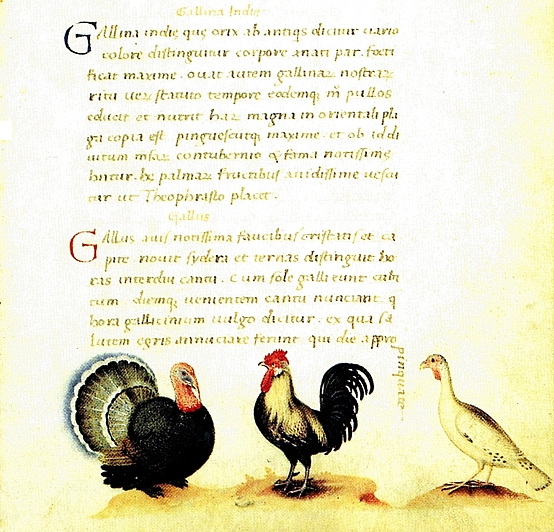 Gallina Indie
Gallina indie que orix ab antiqs dicitur uario
colore distinguitur corpore anati par. foeti
ficat maxime. ouat autem gallinaz nostraz
ritu uez statuto tempore eodemq; m pullos
educit et nutrit haz magna in orientali pla
ga copia est pinguescutq; maxime. et ob id di
uitum contubernio & fama notissime
hntur. he palmaz fructibus auidissime uescu
tur ut Theophrasto placet.
Gallus
Gallus auis notissima faucibus cristatis et ca
pite nouit sydera et ternas distinguit ho
ras interdiu cantu. Cum sole galli eunt cubi
tum diemq; uenientem cantu nunciant q
hora gallicinium uulgo dicitur. ex qua sa
lutem egris annuciare ferunt qui die appro
pinquate